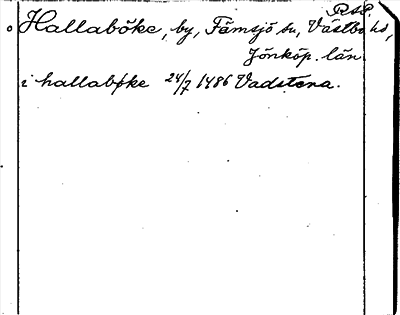 RSP.
Hallaböke, by, Fämsjö sn, Västbo hd,
Jönköp. län.
i hallabøke 24/7 1486 Vadstena.